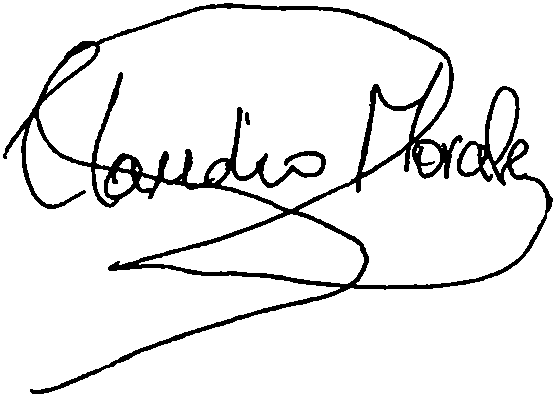 Claudio Morales